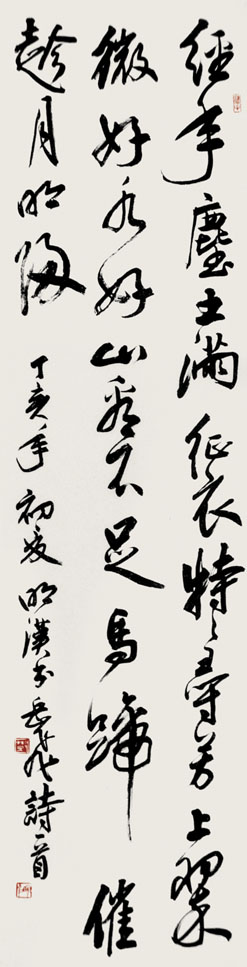 經年塵土滿征衣特々尋芳上翠
微好水好山看不足馬蹄催
趁月明歸
丁亥年初夏明漢書岳飛詩一首